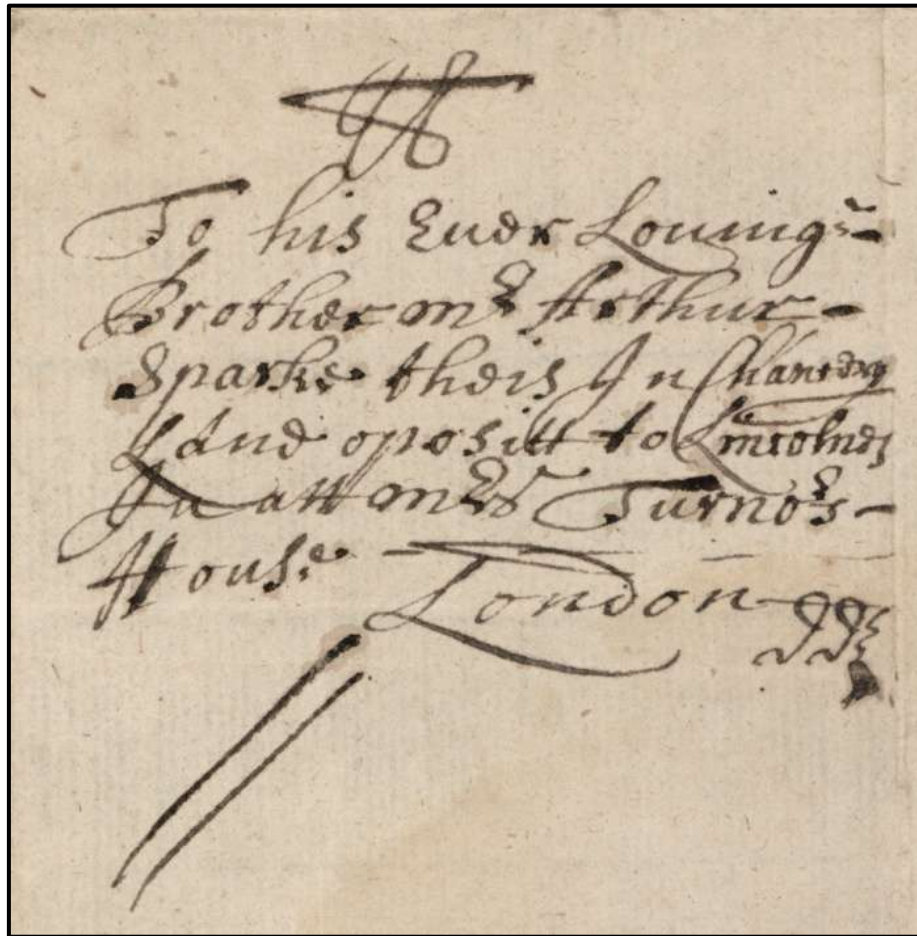 To his Euer Louing
Brother mr Arthur
Sparke theis In Chancery
Lane opositt to Lincolnes
In att mrs Turnors
House
London dd